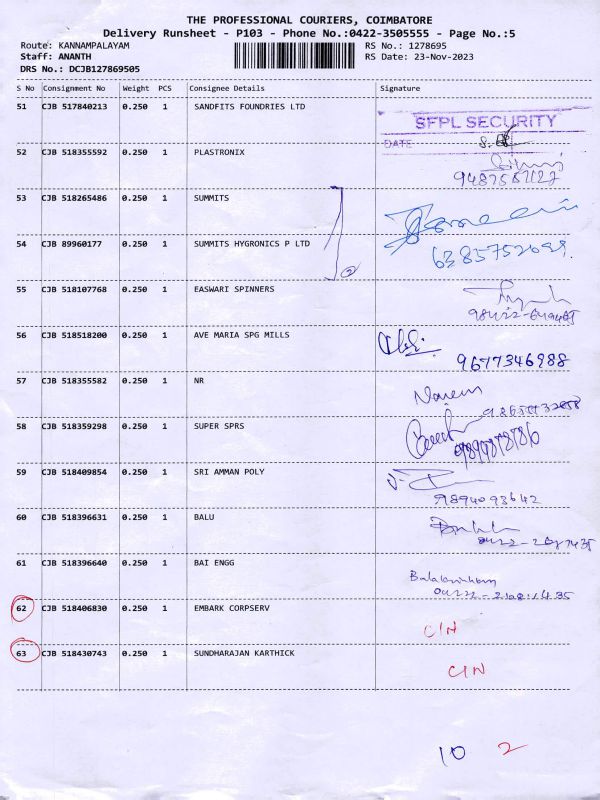 THE PROFESSIONAL COURIERS, COIMBATORE
Delivery Runsheet - P103 - Phone No.:0422-3505555 - Page No.:5
Route: KANNAMPALAYAM RS No.: 1278695
Staff: ANANTH RS Date: 23-Nov-2023
DRS No.: DCJB127869505
S No Consignment No Weight PCS Consignee Details Signature
51 CJB 517840213 0.250 1 SANDFITS FOUNDRIES LTD
SFPL SECURITY
DATE
52 CJB 518355592 0.250 1 PLASTRONIX
53 CJB 518265486 0.250 1 SUMMITS
54 CJB 89960177 0.250 1 SUMMITS HYGRONICS P LTD
55 CJB 518107768 0.250 1 EASWARI SPINNERS
56 CJB 518518200 0.250 1 AVE MARIA SPG MILLS
9677346988
57 CJB 518355582 0.250 1 NR
58 CJB 518359298 0.250 1 SUPER SPRS
59 CJB 518409854 0.250 1 SRI AMMAN POLY
9894093642
60 CJB 518396631 0.250 1 BALU
61 CJB 518396640 0.250 1 BAI ENGG
62 CJB 518406830 0.250 1 EMBARK CORPSERV C/N
63 CJB 518430743 0.250 1 SUNDHARAJAN KARTHICK C/N
10 2